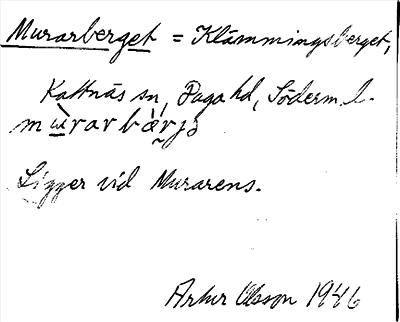 Murarberget = Klämmingsberget,
Kattnäs sn, Daga hd, Söderm l.
mùrarbærjə
Ligger vid Murarens.
Artur Olsson 1946